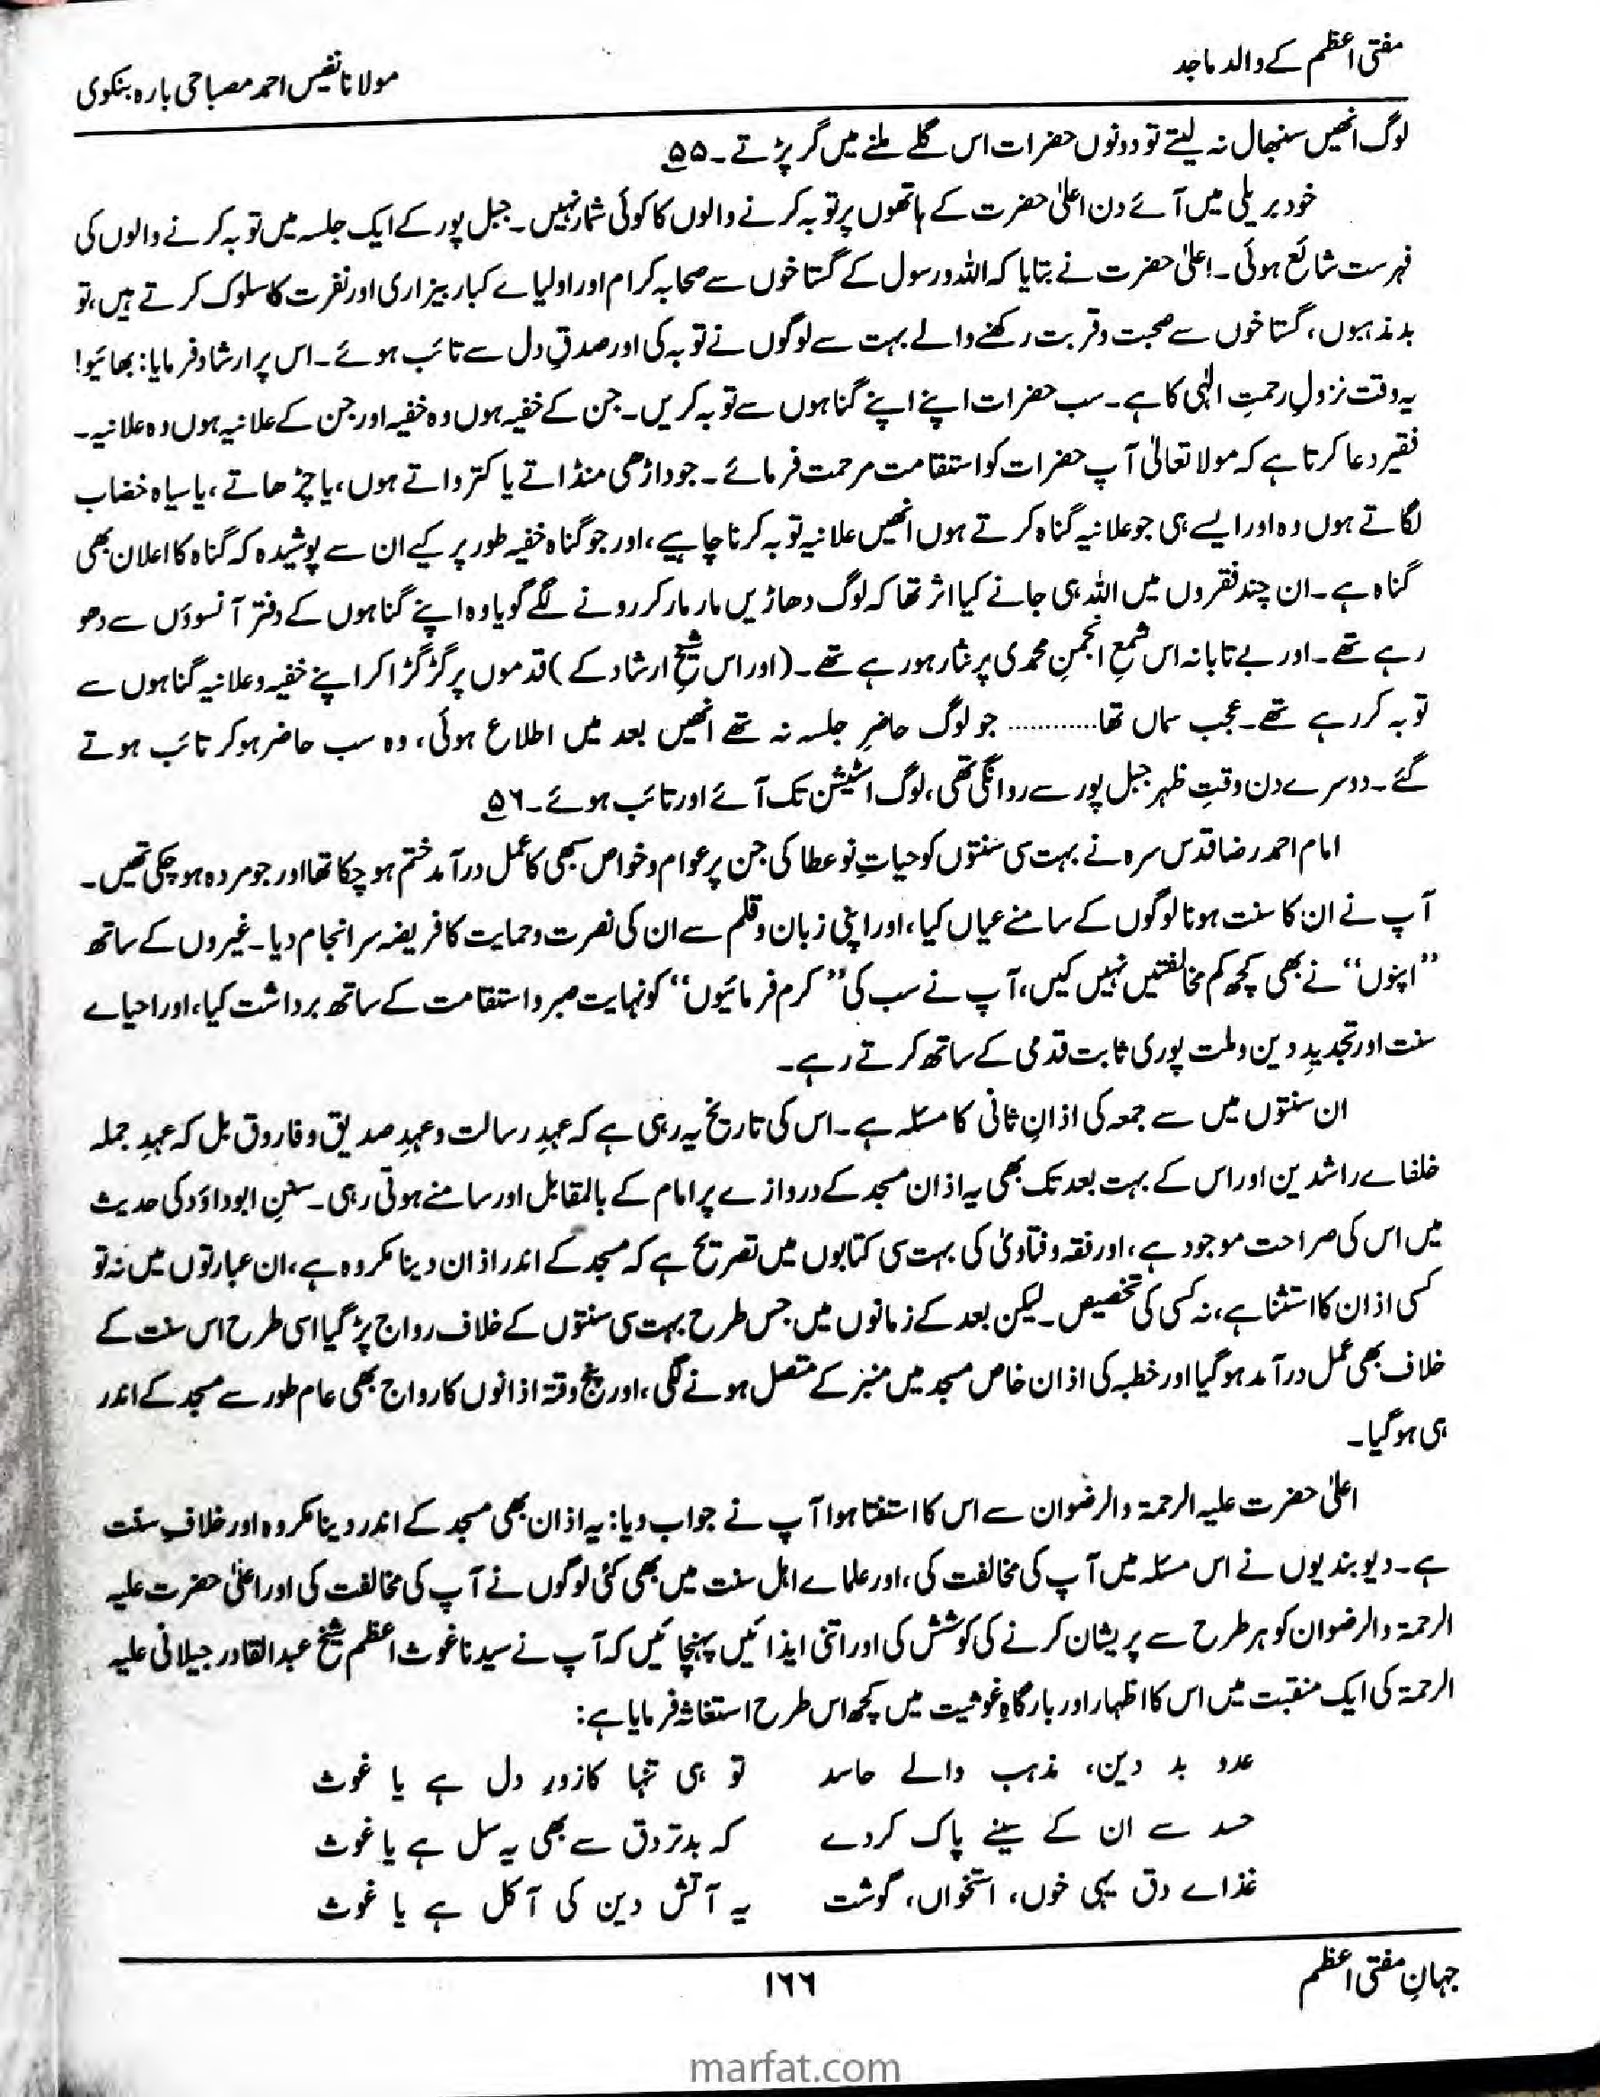 مفتی اعظم کے والد ماجد
مولانا نفیس احمد مصباحی بارہ بنکوی
لوگ انھیں سنبھال نہ لیتے تو دونوں حضرات اس گلے ملنے میں گر پڑتے۔ ۵۵
خود بریلی میں آئے دن اعلیٰ حضرت کے ہاتھوں پر توبہ کرنے والوں کا کوئی شمار نہیں۔ جبل پور کے ایک جلسہ میں توبہ کرنے والوں کی
فہرست شائع ہوئی۔ اعلیٰ حضرت نے بتایا کہ اللہ و رسول کے گستاخوں سے صحابہ کرام اور اولیاے کبار بیزاری اور نفرت کا سلوک کرتے ہیں، تو
بد مذہبوں، گستاخوں سے صحبت و قربت رکھنے والے بہت سے لوگوں نے توبہ کی اور صدقِ دل سے تائب ہوئے۔ اس پر ارشاد فرمایا: بھائیو!
یہ وقت نزولِ رحمتِ الٰہی کا ہے۔ سب حضرات اپنے اپنے گناہوں سے توبہ کریں۔ جن کے خفیہ ہوں وہ خفیہ اور جن کے علانیہ ہوں وہ علانیہ۔
فقیر دعا کرتا ہے کہ مولا تعالیٰ آپ حضرات کو استقامت مرحمت فرمائے۔ جو داڑھی منڈاتے یا کترواتے ہوں، یا چڑھاتے، یا سیاہ خضاب
لگاتے ہوں وہ اور ایسے ہی جو علانیہ گناہ کرتے ہوں انھیں علانیہ توبہ کرنا چاہیے، اور جو گناہ خفیہ طور پر کیے ان سے پوشیدہ کہ گناہ کا اعلان بھی
گناہ ہے۔ ان چند فقروں میں اللہ ہی جانے کیا اثر تھا کہ لوگ دھاڑیں مار مار کر رونے لگے گویا وہ اپنے گناہوں کے دفتر آنسوؤں سے دھو
رہے تھے۔ اور بے تابانہ اس شمعِ انجمنِ محمدی پر نثار ہو رہے تھے۔ (اور اس شیخِ ارشاد کے) قدموں پر گڑگڑا کر اپنے خفیہ و علانیہ گناہوں سے
توبہ کر رہے تھے۔ عجب سماں تھا............ جو لوگ حاضرِ جلسہ نہ تھے انھیں بعد میں اطلاع ہوئی، وہ سب حاضر ہو کر تائب ہوتے
گئے۔ دوسرے دن وقتِ ظہر جبل پور سے روانگی تھی، لوگ اسٹیشن تک آئے اور تائب ہوئے۔ ۵۶
امام احمد رضا قدس سرہ نے بہت سی سنتوں کو حیاتِ نو عطا کی جن پر عوام و خواص سبھی کا عمل در آمد ختم ہو چکا تھا اور جو مردہ ہو چکی تھیں۔
آپ نے ان کا سنت ہونا لوگوں کے سامنے عیاں کیا، اور اپنی زبان و قلم سے ان کی نصرت و حمایت کا فریضہ سر انجام دیا۔ غیروں کے ساتھ
”اپنوں“ نے بھی کچھ کم مخالفتیں نہیں کیں، آپ نے سب کی ”کرم فرمائیوں“ کو نہایت صبر و استقامت کے ساتھ برداشت کیا، اور احیاے
سنت اور تجدیدِ دین و ملت پوری ثابت قدمی کے ساتھ کرتے رہے۔
ان سنتوں میں سے جمعہ کی اذانِ ثانی کا مسئلہ ہے۔ اس کی تاریخ یہ رہی ہے کہ عہدِ رسالت و عہدِ صدیق و فاروق بل کہ عہدِ جملہ
خلفاے راشدین اور اس کے بہت بعد تک بھی یہ اذان مسجد کے دروازے پر امام کے بالمقابل اور سامنے ہوتی رہی۔ سننِ ابو داؤد کی حدیث
میں اس کی صراحت موجود ہے، اور فقہ و فتاویٰ کی بہت سی کتابوں میں تصریح ہے کہ مسجد کے اندر اذان دینا مکروہ ہے، ان عبارتوں میں نہ تو
کسی اذان کا استثنا ہے، نہ کسی کی تخصیص۔ لیکن بعد کے زمانوں میں جس طرح بہت سی سنتوں کے خلاف رواج پڑ گیا اسی طرح اس سنت کے
خلاف بھی عمل در آمد ہو گیا اور خطبہ کی اذان خاص مسجد میں منبر کے متصل ہونے لگی، اور پنج وقتہ اذانوں کا رواج بھی عام طور سے مسجد کے اندر
ہی ہو گیا۔
اعلیٰ حضرت علیہ الرحمۃ والرضوان سے اس کا استفتا ہوا آپ نے جواب دیا: یہ اذان بھی مسجد کے اندر دینا مکروہ اور خلافِ سنت
ہے۔ دیوبندیوں نے اس مسئلہ میں آپ کی مخالفت کی، اور علماے اہل سنت میں بھی کئی لوگوں نے آپ کی مخالفت کی اور اعلیٰ حضرت علیہ
الرحمۃ والرضوان کو ہر طرح سے پریشان کرنے کی کوشش کی اور اتنی ایذائیں پہنچائیں کہ آپ نے سیدنا غوث اعظم شیخ عبدالقادر جیلانی علیہ
الرحمۃ کی ایک منقبت میں اس کا اظہار اور بارگاہِ غوثیت میں کچھ اس طرح استغاثہ فرمایا ہے:
عدو بد دین، مذہب والے حاسد تو ہی تنہا کا زورِ دل ہے یا غوث
حسد سے ان کے سینے پاک کر دے کہ بدتر دق سے بھی یہ سل ہے یا غوث
غذاے دق یہی خوں، استخواں، گوشت یہ آتش دین کی آکل ہے یا غوث
جہانِ مفتی اعظم
۱۶۶
marfat.com